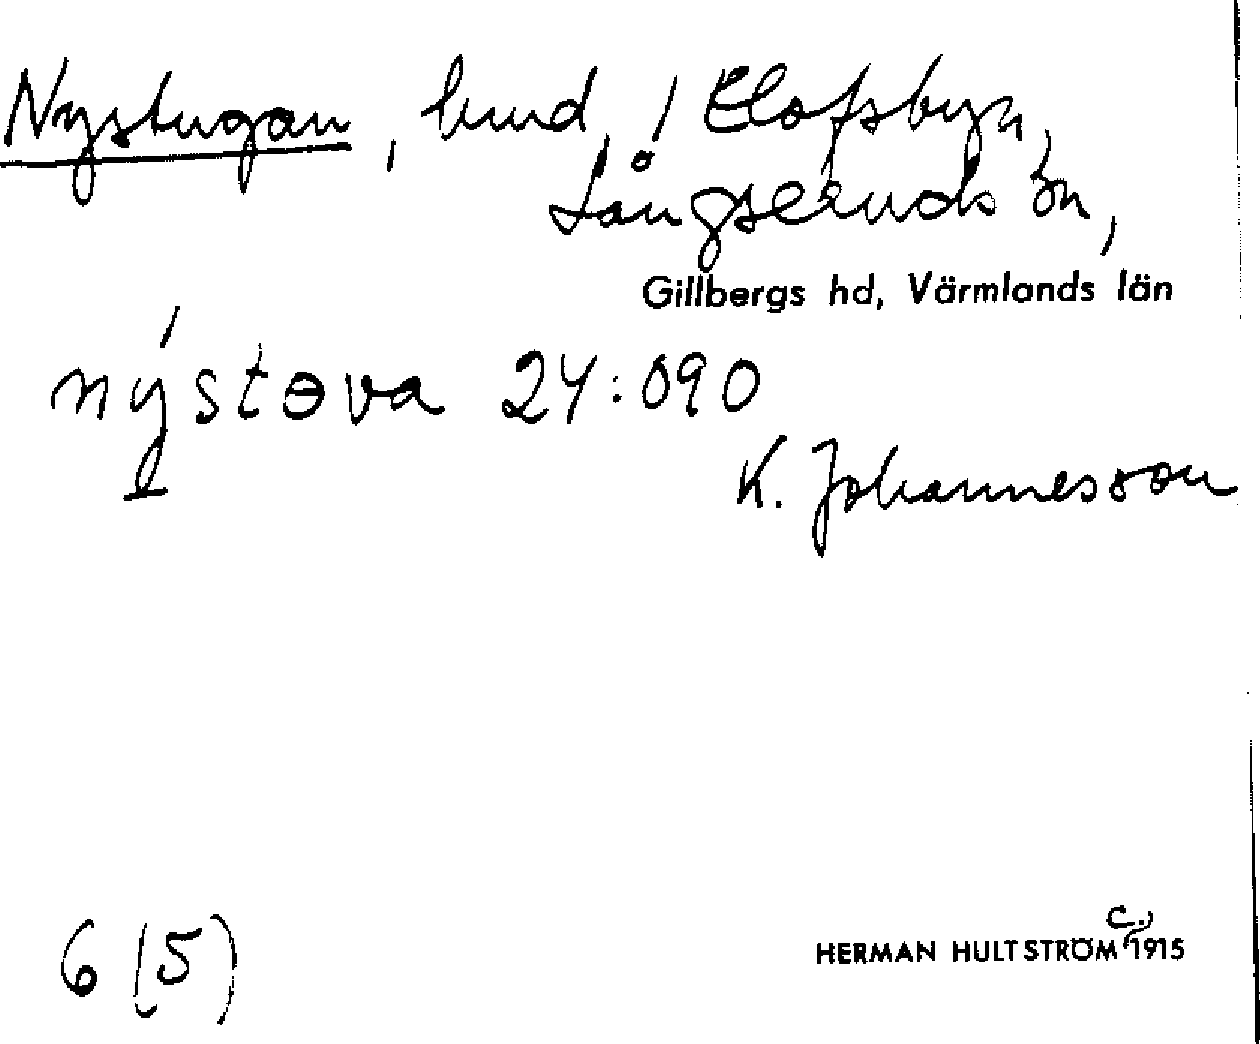 Nystugan, lund, i Elofsbyn,
Långseruds sn,
Gillbergs hd, Värmlands län
nýstova 24:090
K. Johannesson
6 (5)
HERMAN HULTSTRÖM (c.) 1915